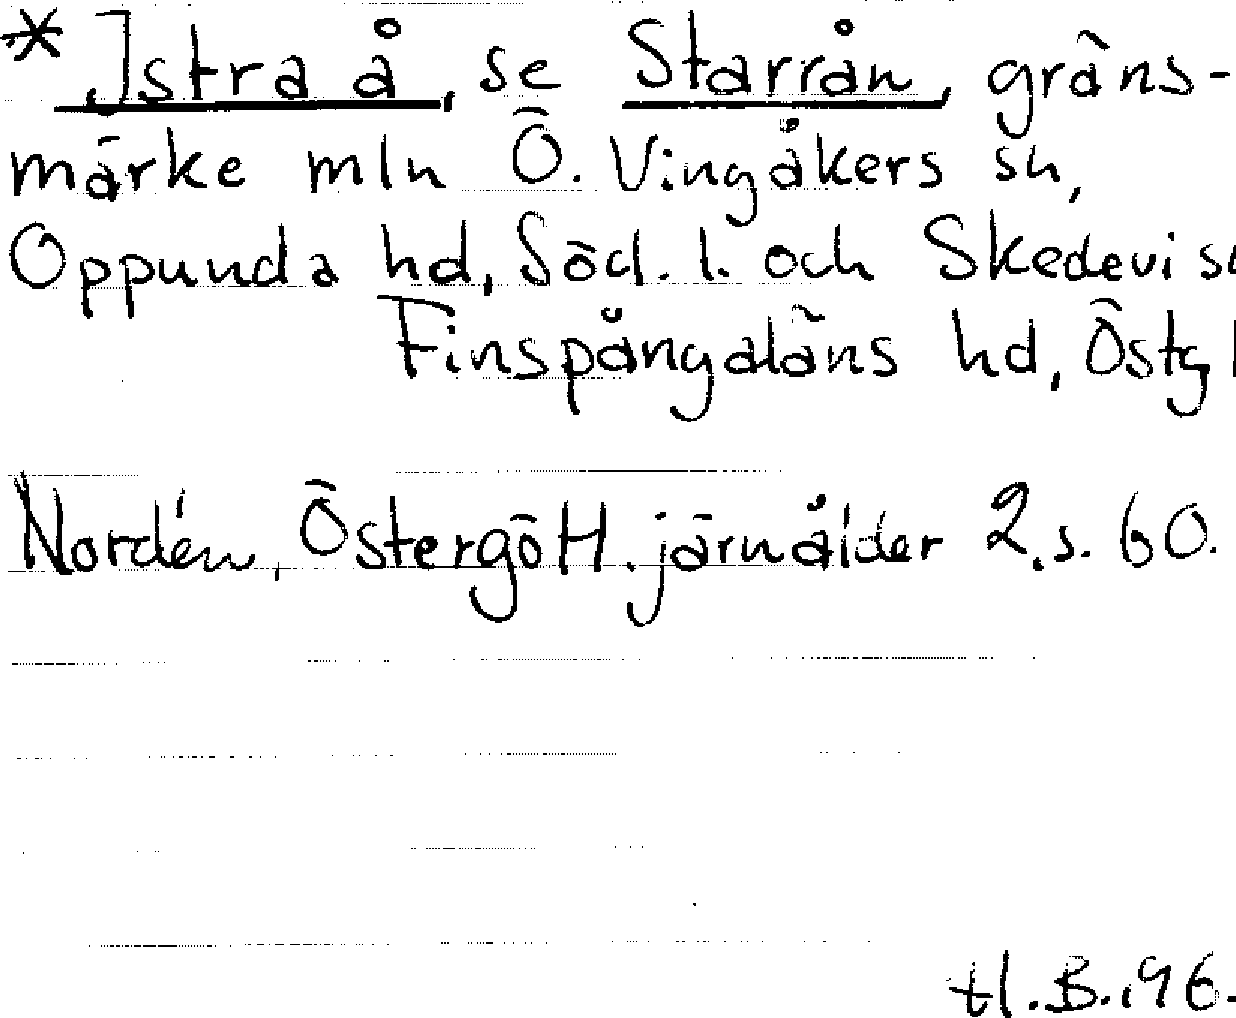 * Istra å, se Starrån, gräns-
märke mln Ö. Vingåkers sn,
Oppunda hd, Söd. l. och Skedevi
Finspångaläns hd, Östg
Nordén, Östergötl. järnålder 2. s. 60.
tl. B. 96.